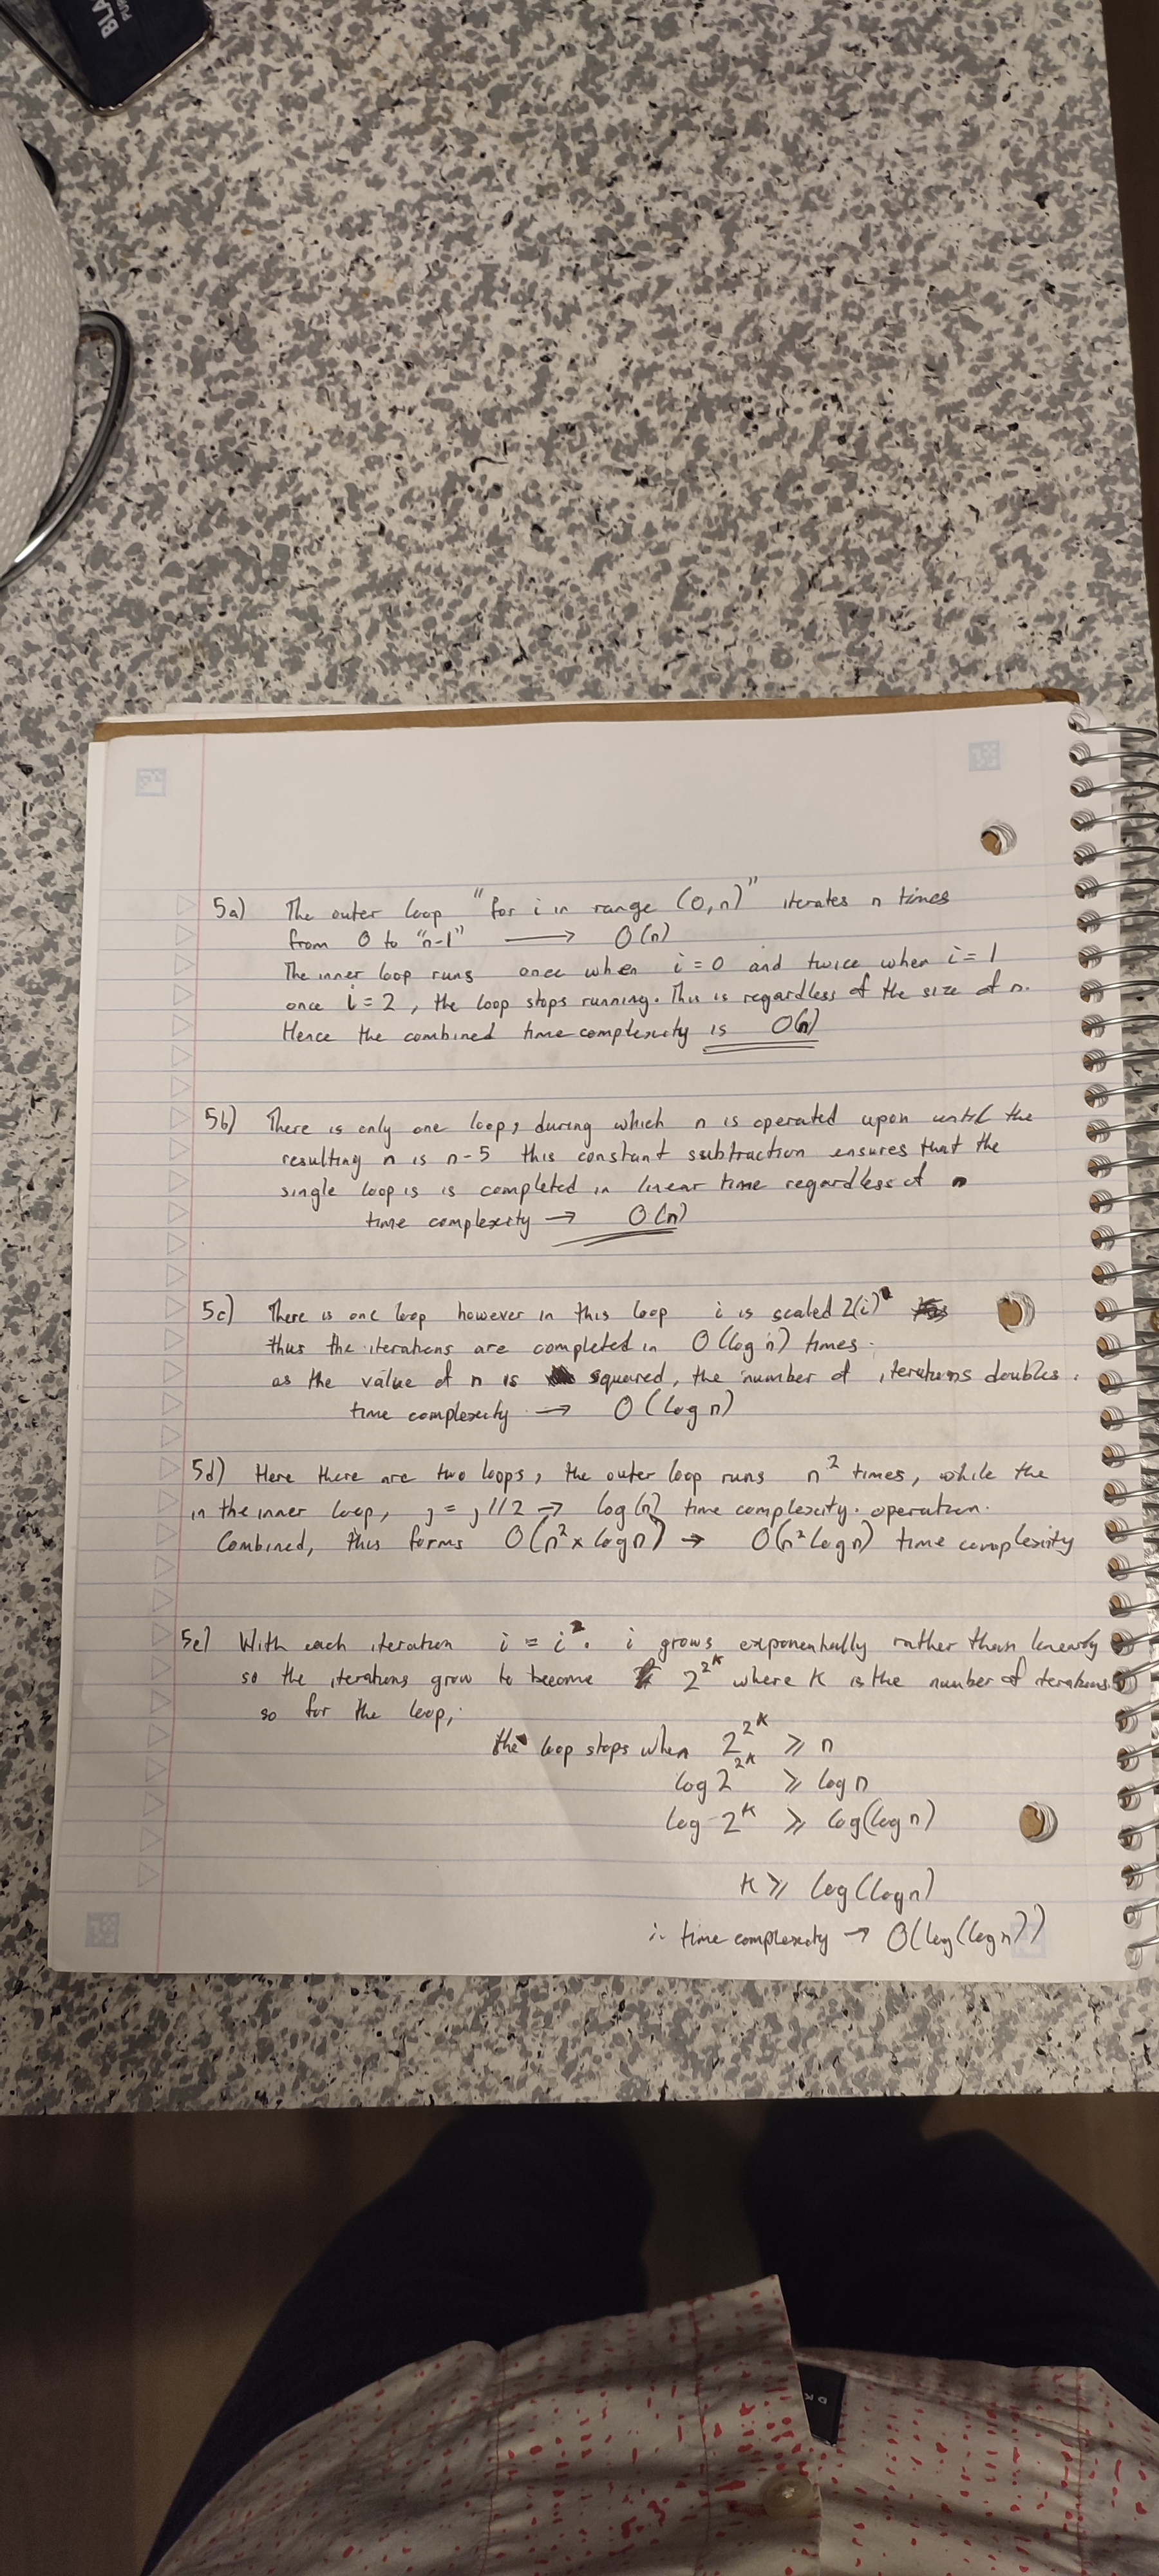 BLA
PU
5a) The outer loop "for i in range (0,n)" iterates n times
from 0 to "n-1" → O(n)
The inner loop runs once when i=0 and twice when i=1
once i=2, the loop stops running. This is regardless of the size of n.
Hence the combined time complexity is O(n)
5b) There is only one loop, during which n is operated upon until the
resulting n is n-5 this constant subtraction ensures that the
single loop is is completed in linear time regardless of n
time complexity → O(n)
5c) There is one loop however in this loop i is scaled 2(i)
thus the iterations are completed in O(log n) times.
as the value of n is squared, the number of iterations doubles.
time complexity → O(log n)
5d) Here there are two loops, the outer loop runs n² times, while the
in the inner loop, j = j//2 → log(n) time complexity. operation.
Combined, this forms O(n² x log n) → O(n² log n) time complexity
5e) With each iteration i = i². i grows exponentially rather than linearly
so the iterations grow to become 2^2^k where k is the number of iterations.
so for the loop,
the loop stops when 2^2^k ≥ n
log 2^2^k ≥ log n
log 2^k ≥ log(log n)
k ≥ log(log n)
∴ time complexity → O(log(log n))